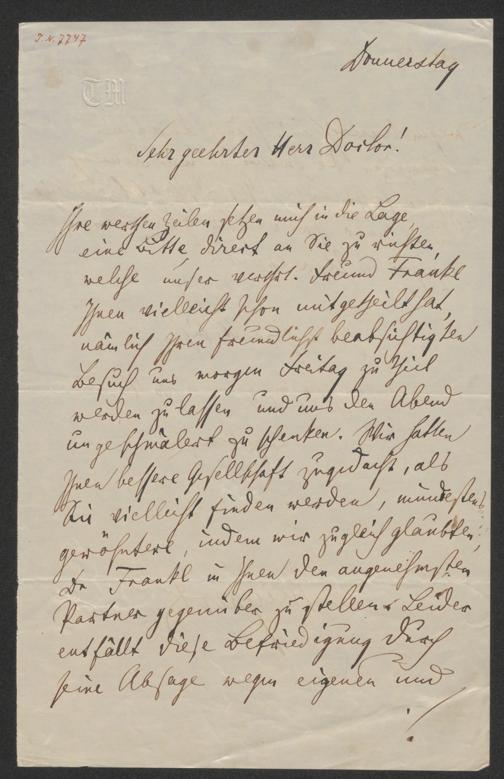 J.N. 7747
TM
Donnerstag
Sehr geehrter Herr Doctor!
Ihre werthen Zeilen setzen mich in die Lage,
eine Bitte, direct an Sie zu richten,
welche unser verehrt. Freund Frankl
Ihnen vielleicht schon mitgetheilt hat,
nämlich Ihren freundlichst beabsichtigten
Besuch uns morgen Freitag zu Theil
werden zu lassen und uns den Abend
ungeschmälert zu schenken. Wir hatten
Ihnen bessere Gesellschaft zugedacht, als
Sie vielleicht finden werden, mindestens
gewähltere, indem wir zugleich glaubten,
Dr Frankl in Ihnen den angenehmsten
Partner gegenüber zu stellen. Leider
entfällt diese Befriedigung durch
seine Absage wegen eigenen und